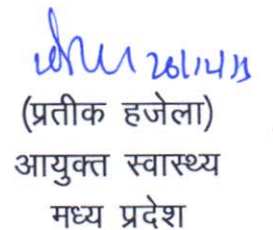 (प्रतीक हजेला)
आयुक्त स्वास्थ्य
मध्य प्रदेश